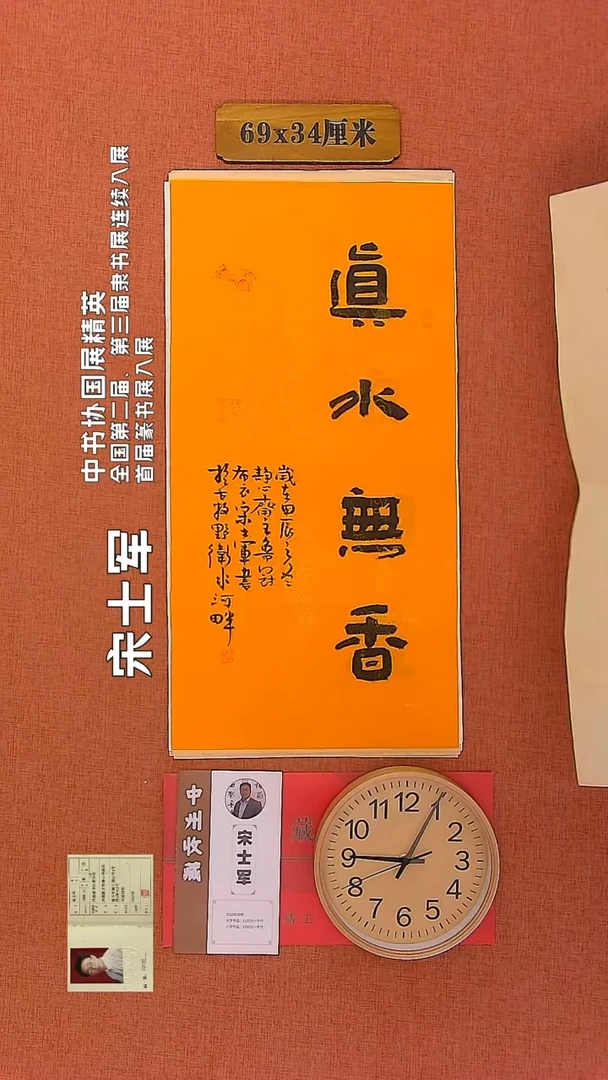 69x34厘米
真水無香
歲在甲辰之冬
静心齋主魯冠
布衣宋士軍書
於古牧野衛水河畔
宋士军
中书协国展精英
全国第二届、第三届隶书展连续入展
首届篆书展入展
中书协
收藏
宋士军
藏
12
1
2
3
4
5
6
7
8
9
10
11